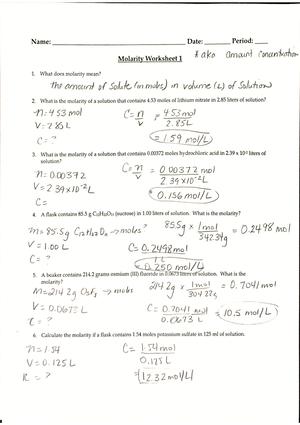 Name: Date: Period:
Molarity Worksheet 1
* aka amount concentration
1. What does molarity mean?
The amount of solute (in moles) in volume (L) of solution
2. What is the molarity of a solution that contains 4.53 moles of lithium nitrate in 2.85 liters of solution?
n = 4.53 mol
V = 2.85 L
C = ?
C = n/V = 4.53 mol / 2.85 L
= 1.59 mol/L
3. What is the molarity of a solution that contains 0.00372 moles hydrochloric acid in 2.39 x 10-2 liters of solution?
n = 0.00372
V = 2.39 x 10-2 L
C =
C = n/V = 0.00372 mol / 2.39 x 10-2 L
= 0.156 mol/L
4. A flask contains 85.5 g C12H22O11 (sucrose) in 1.00 liters of solution. What is the molarity?
m = 85.5g C12H22O11 → moles?
V = 1.00 L
C = ?
85.5g x 1 mol / 342.34g = 0.2498 mol
C = 0.2498 mol / 1 L
= 0.250 mol/L
5. A beaker contains 214.2 grams osmium (III) fluoride in 0.0673 liters of solution. What is the
molarity?
m = 214.2g OsF3 → moles
V = 0.0673 L
C = ?
214.2g x 1 mol / = 0.7041 mol
C = 0.7041 mol / 0.0673 L = 10.5 mol/L
6. Calculate the molarity if a flask contains 1.54 moles potassium sulfate in 125 ml of solution.
n = 1.54
V = 0.125 L
C = ?
C = 1.54 mol / 0.125 L
= 12.32 mol/L